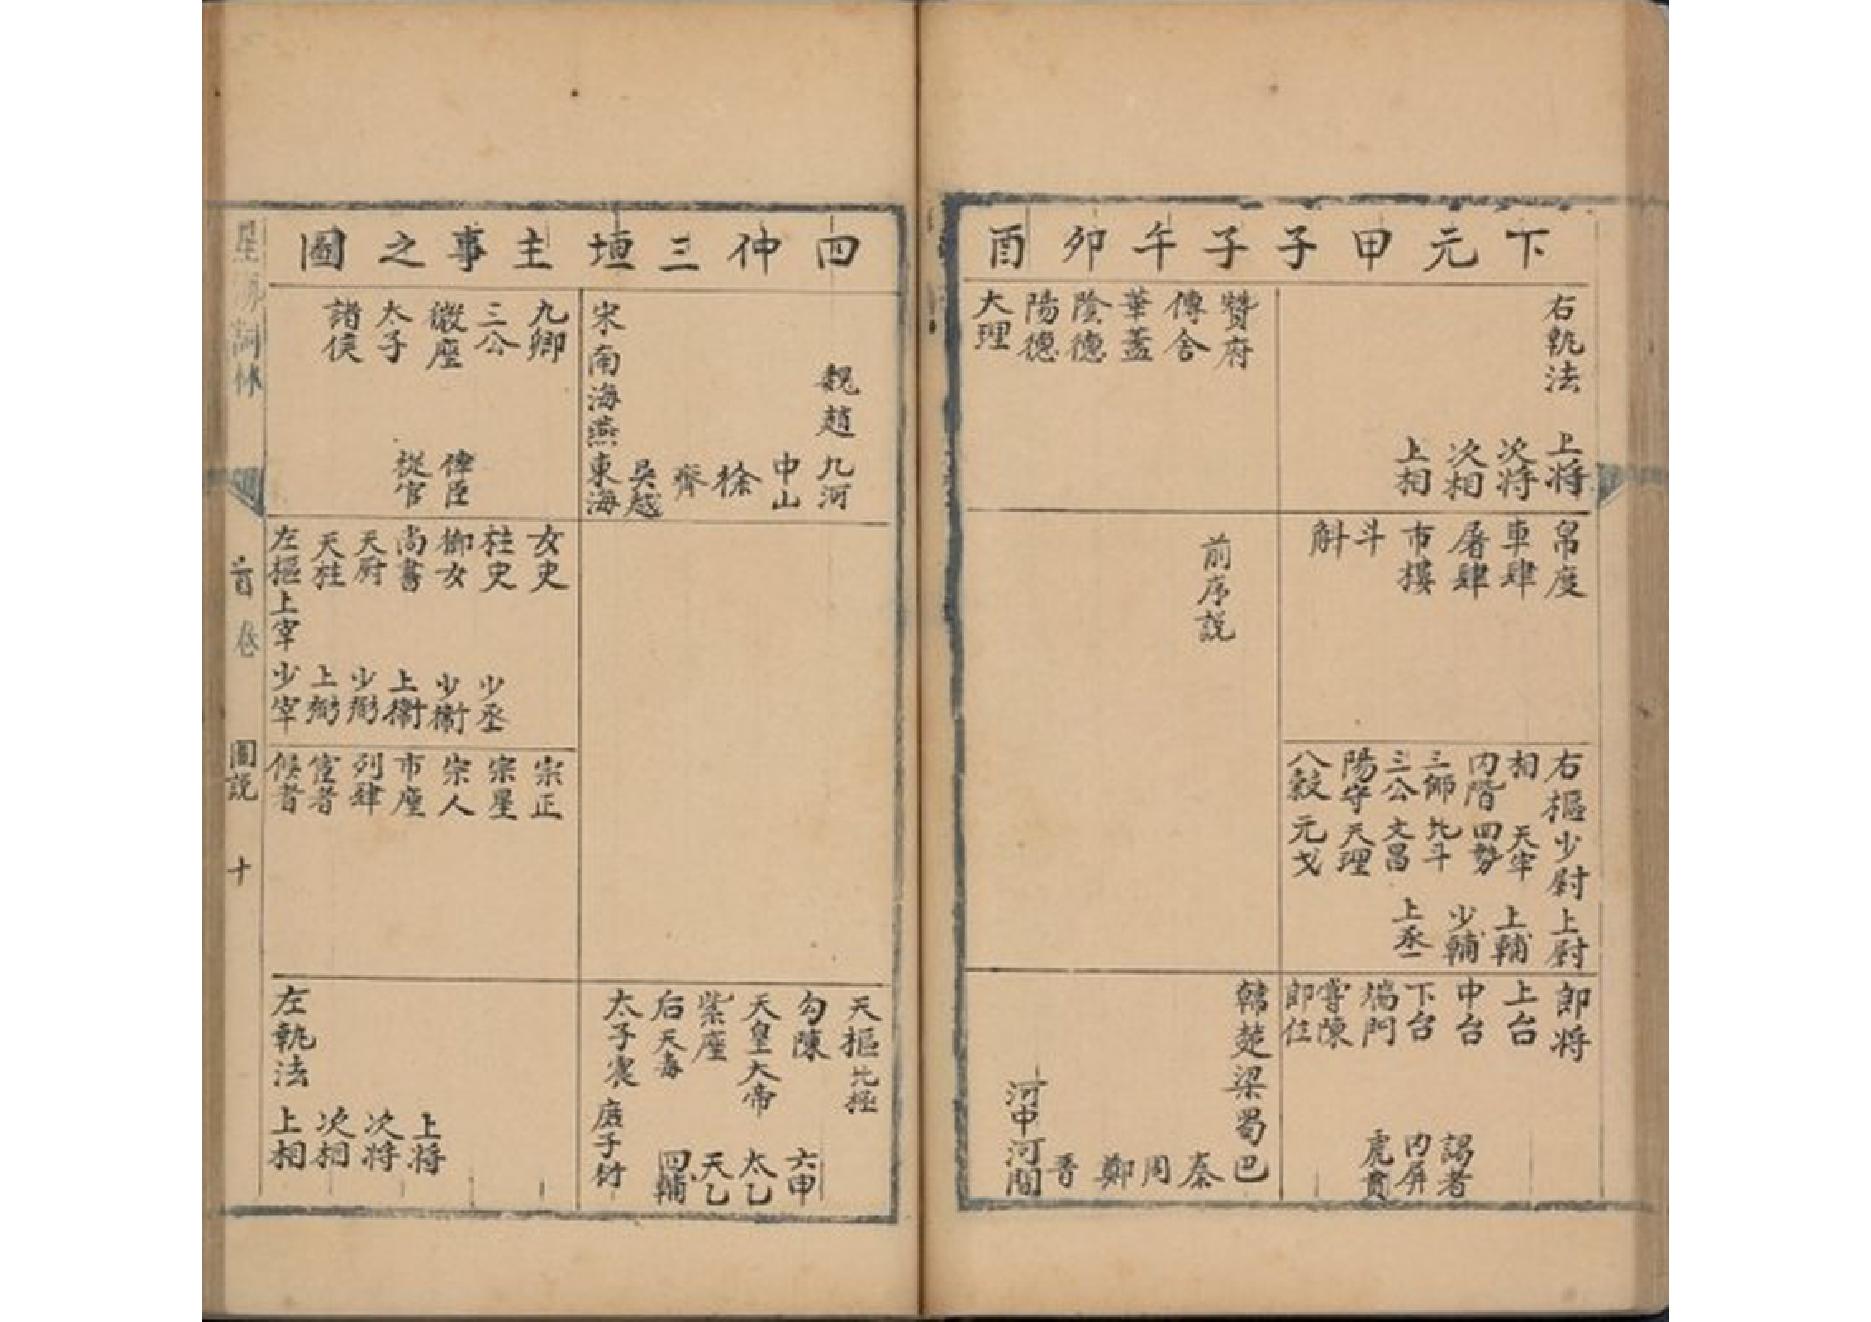 下元甲子子午卯酉
右執法
上將
次將
次相
上相
帛度
車肆
屠肆
市樓
斗
斛
右樞少尉上尉
相 天牢 上輔
內階 四勢 少輔
三師 北斗
三公 文昌 上丞
陽守 天理
八穀 元戈
郎將
上台
中台
下台
端門
郎位
謁者
內屏
虎賁
贊府
傳舍
華蓋
陰德
陽德
大理
前序說
韓楚梁蜀巴
秦
周
鄭
晉
河中河間
四仲三垣主事之圖
魏趙九河
中山
徐
齊
吳越
宋南海燕東海
天樞北極
勾陳 六甲
天皇大帝 太乙
紫座 天乙
后 四輔
太子 庶子
九卿
三公
太子
諸侯
從官
女史
柱史
御女
尚書
天廚
天柱
左樞上宰少宰
少丞
少衛
上衛
少弼
上弼
宗正
宗星
宗人
市座
列肆
宦者
候者
左執法
上相
次相
次將
上將
首卷
圖說
十